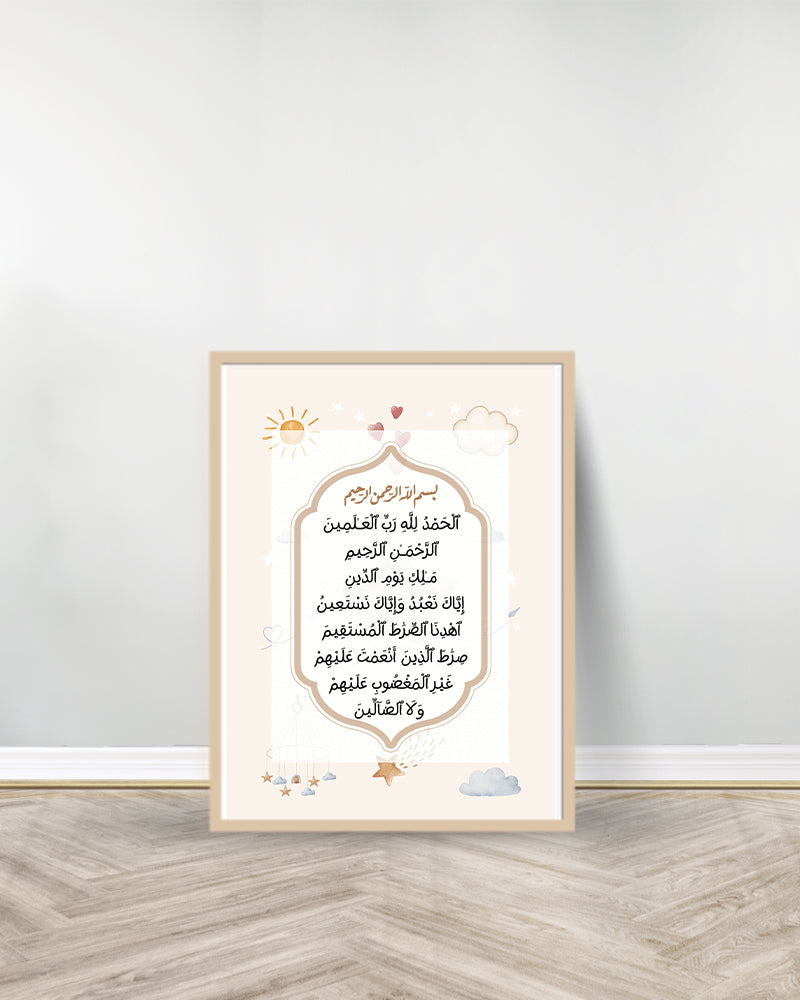 بسم الله الرحمن الرحيم
ٱلْحَمْدُ لِلَّهِ رَبِّ ٱلْعَـٰلَمِينَ
ٱلرَّحْمَـٰنِ ٱلرَّحِيمِ
مَـٰلِكِ يَوْمِ ٱلدِّينِ
إِيَّاكَ نَعْبُدُ وَإِيَّاكَ نَسْتَعِينُ
ٱهْدِنَا ٱلصِّرَٰطَ ٱلْمُسْتَقِيمَ
صِرَٰطَ ٱلَّذِينَ أَنْعَمْتَ عَلَيْهِمْ
غَيْرِ ٱلْمَغْضُوبِ عَلَيْهِمْ
وَلَا ٱلضَّآلِّينَ